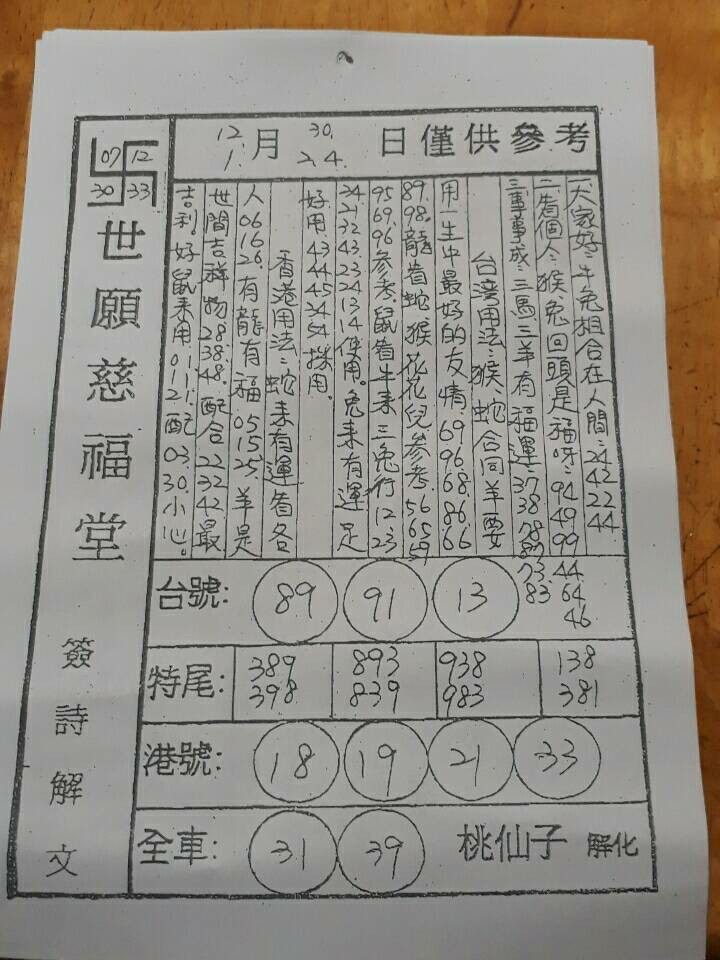 12月 30.
1. 2.4. 日僅供參考
07 12
30 33
世願慈福堂
簽詩解文
一大家好:牛兔相合在人間:24 42 22 44
二先個人:猴.兔回頭是福呀:94 49 99 44 64 46
三事事成:三馬.三羊有福運:37 38 78 87 73 83
台湾用法:猴蛇合同羊要
用一生中最好的友情69 96 68 86 66
89.98.龍看蛇猴花花兒參考.56 65 59
95 69.96參考鼠看牛來三兔行12 23
34 21 32 43.23 24 13 14使用.兔來有運足
好用.43 44 45 34 54採用.
香港用法:蛇来有運看各
人06 16 26.有龍有福05 15 25.羊是
世間吉祥物28 38 48.配合22 32 42最
吉利好鼠来用01 11 21配03.30.小心.
台號: 89 91 13
特尾: 389 398 893 839 938 983 138 381
港號: 18 19 21 33
全車: 31 39 桃仙子 解化